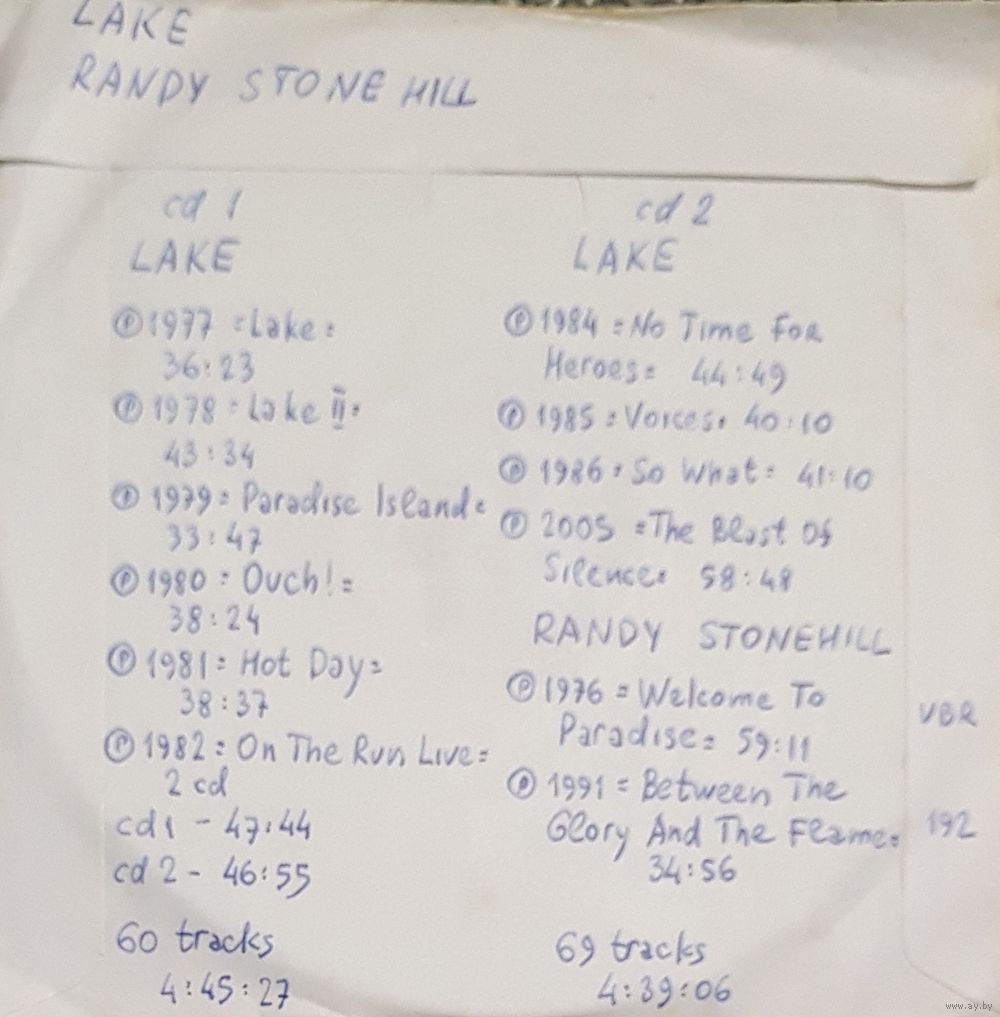 LAKE
RANDY STONEHILL
cd 1
LAKE
Ⓟ 1977 =Lake=
36:23
Ⓟ 1978 = Lake II=
43:34
Ⓟ 1979 = Paradise Island=
33:47
Ⓟ 1980 = Ouch! =
38:24
Ⓟ 1981 = Hot Day=
38:37
Ⓟ 1982 = On The Run Live=
2 cd
cd 1 - 47:44
cd 2 - 46:55
60 tracks
4:45:27
cd 2
LAKE
Ⓟ 1984 =No Time For
Heroes= 44:49
Ⓟ 1985 =Voices= 40:10
Ⓟ 1986 =So What= 41:10
Ⓟ 2005 =The Blast Of
Silence= 58:48
RANDY STONEHILL
Ⓟ 1976 =Welcome To
Paradise= 59:11
Ⓟ 1991 =Between The
Glory And The Flame=
34:56
69 tracks
4:39:06
VBR
192
www.ay.by